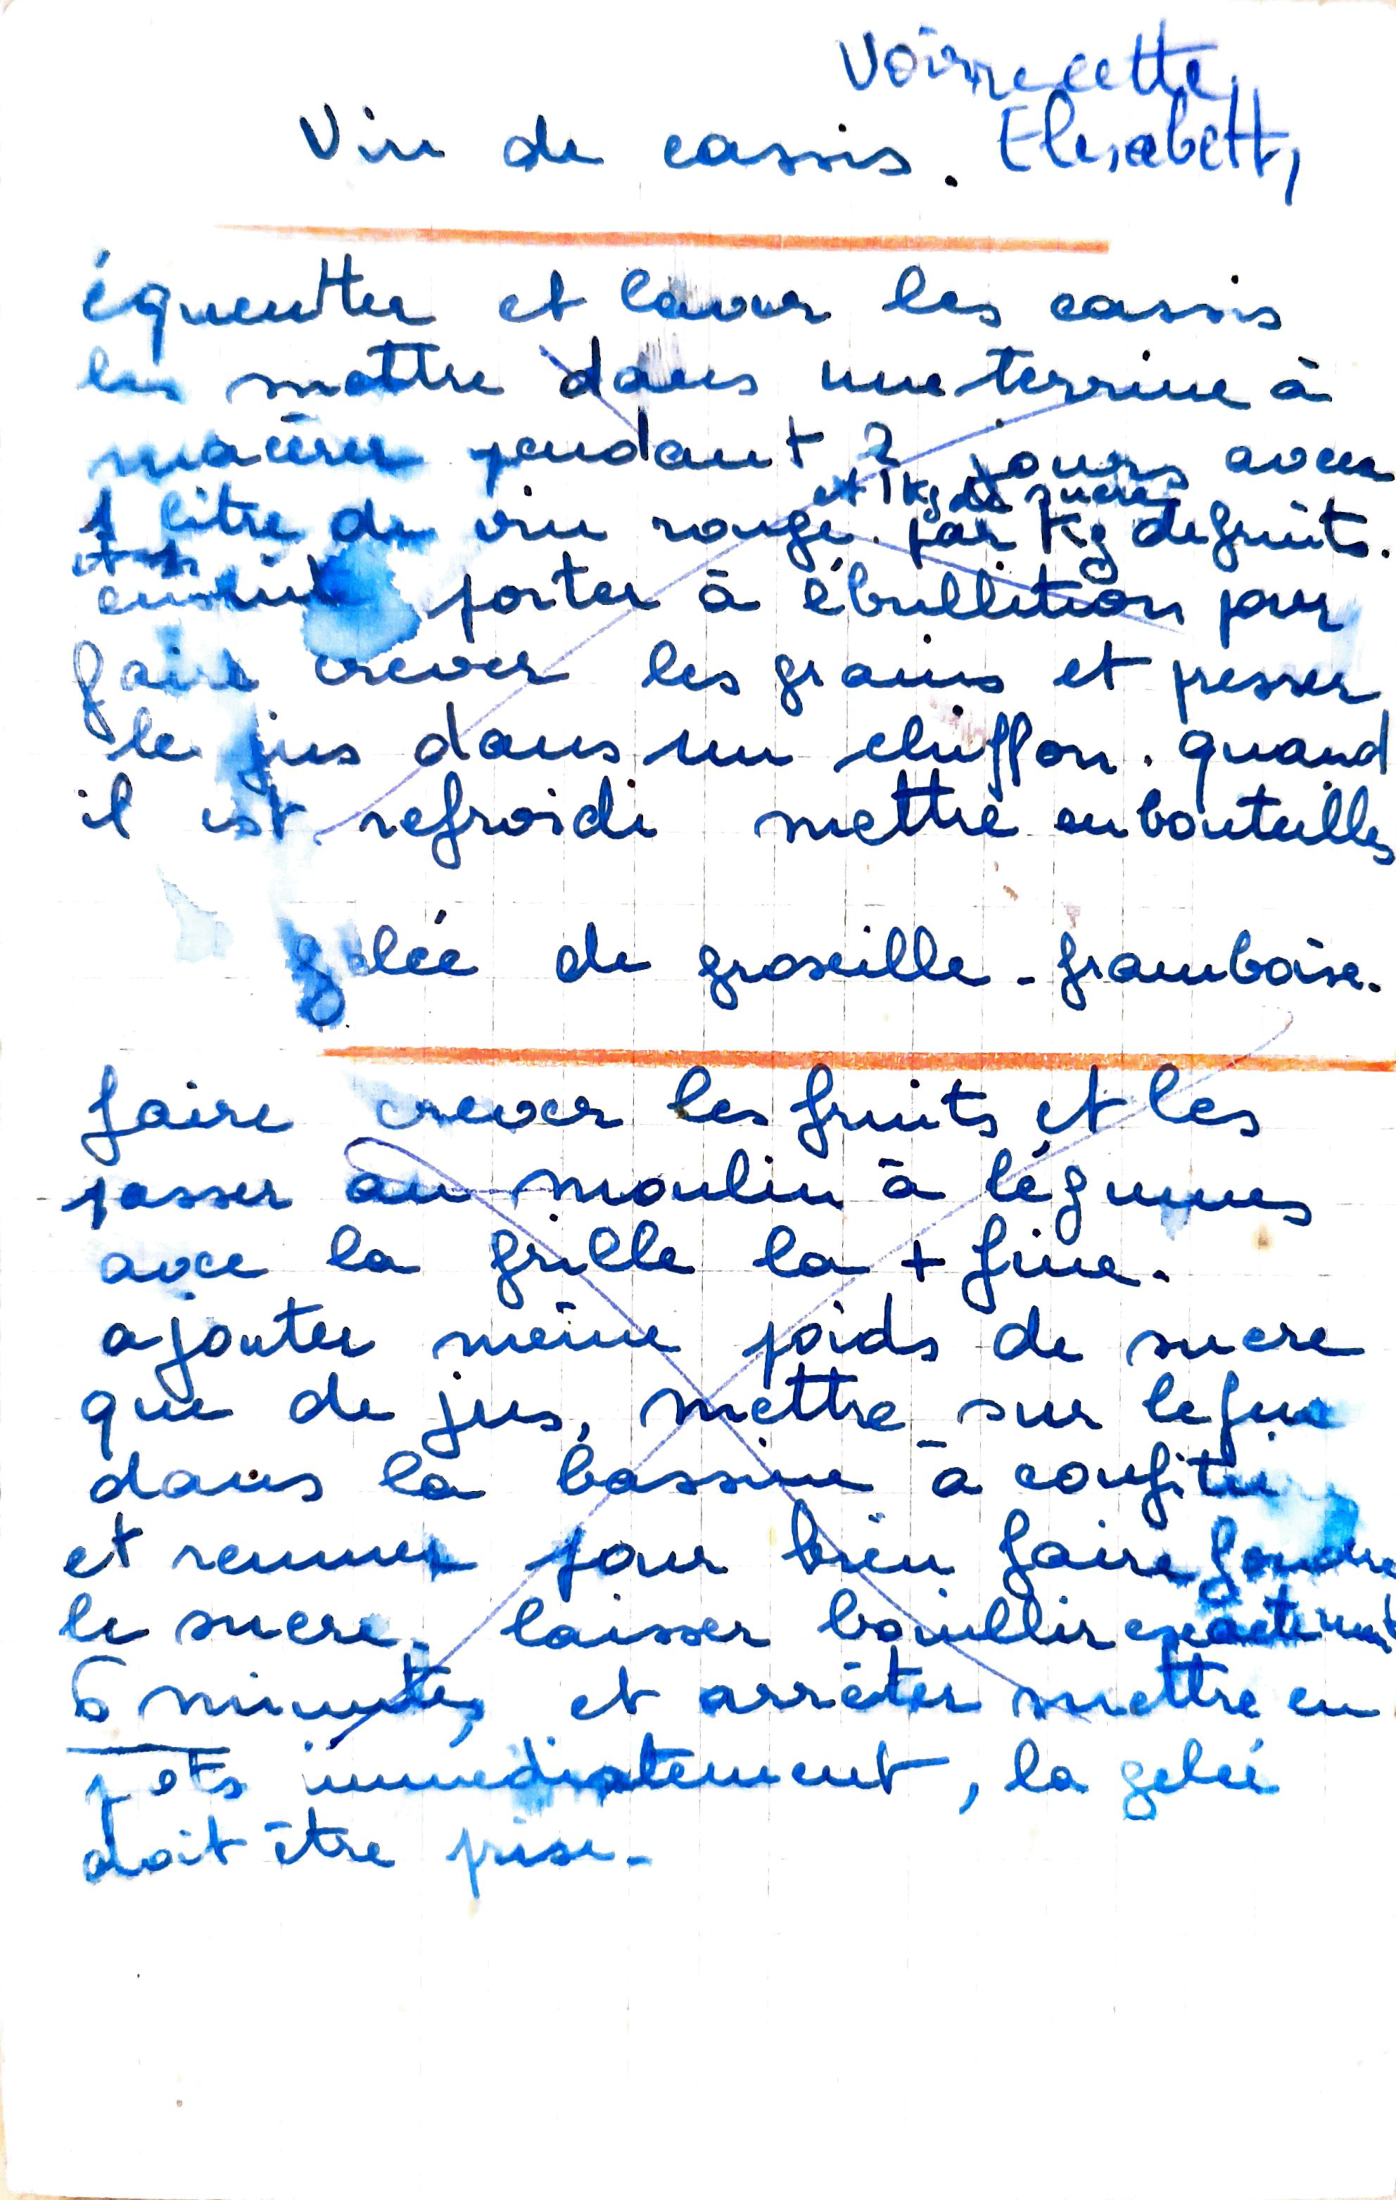 Voir recette
Vin de cassis. Elisabeth,
équeutter et laver les cassis
les mettre dans une terrine à
macérer pendant 2 jours avec
et 1 kg de sucre
1 litre de vin rouge. par kg de fruits.
ensuite porter à ébullition pour
faire crever les grains et presser
le jus dans un chiffon. quand
il est refroidi mettre en bouteilles
gelée de groseille - framboise.
faire crever les fruits et les
passer au moulin à légumes
avec la grille la + fine.
ajouter même poids de sucre
que de jus, mettre sur le feu
dans la bassine à confiture
et remuer pour bien faire fondre
le sucre. laisser bouillir exactement
6 minutes et arrêter mettre en
pots immédiatement, la gelée
doit être prise -